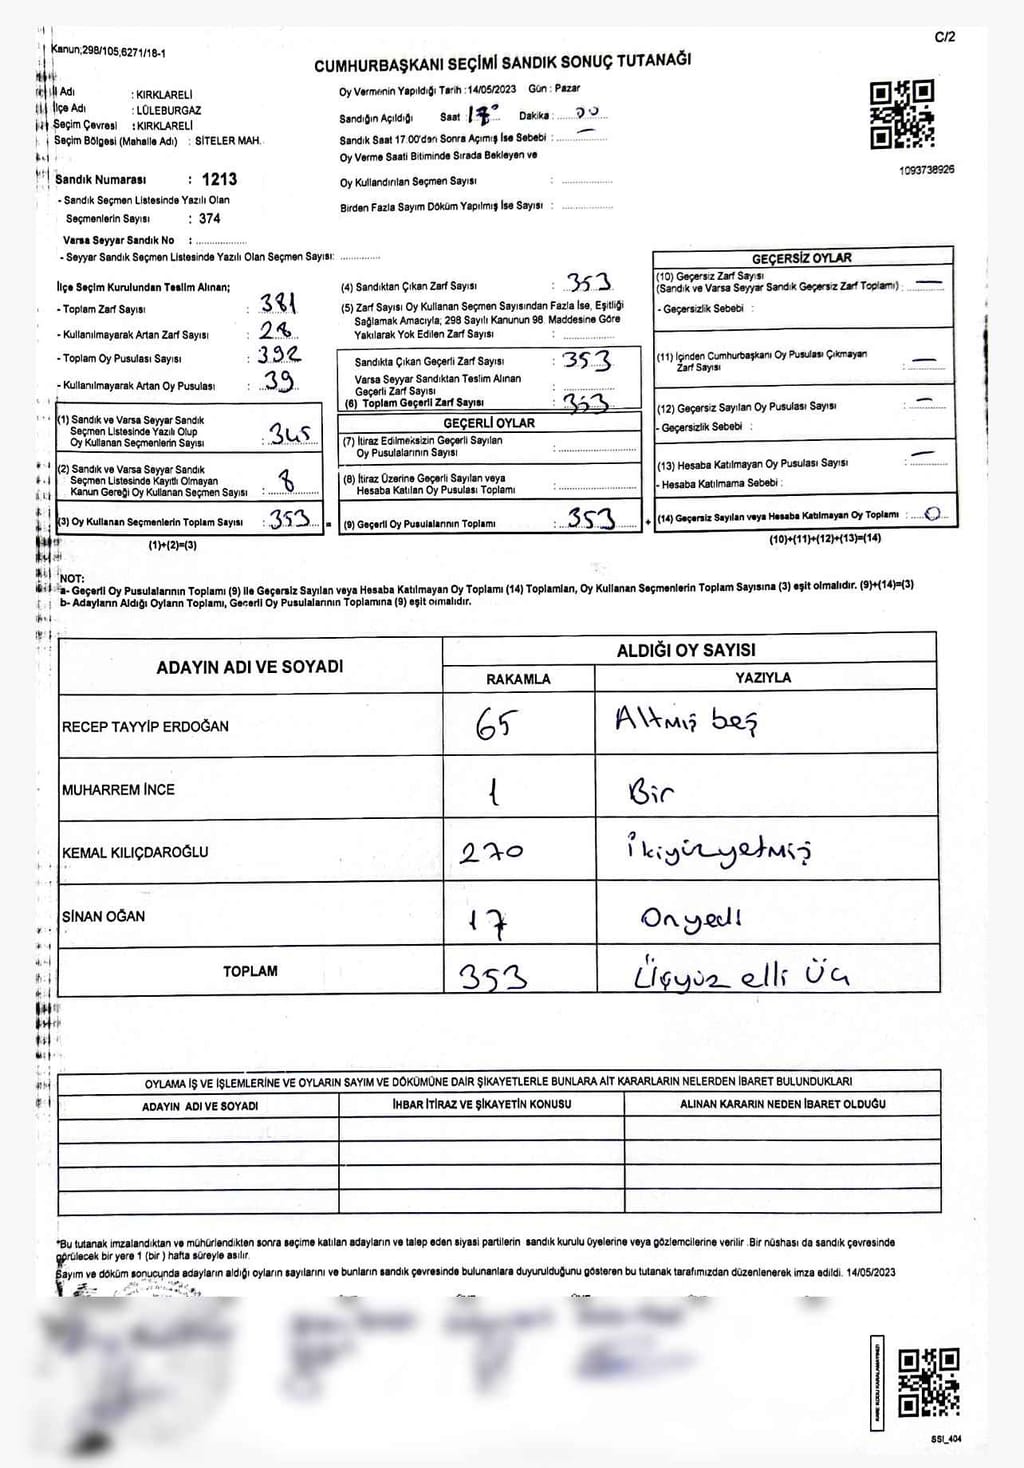 Kanun;298/105,6271/18-1
C/2
CUMHURBAŞKANI SEÇİMİ SANDIK SONUÇ TUTANAĞI
İli Adı : KIRKLARELİ
İlçe Adı : LÜLEBURGAZ
Seçim Çevresi : KIRKLARELİ
Seçim Bölgesi (Mahalle Adı) : SİTELER MAH.
Oy Vermenin Yapıldığı Tarih : 14/05/2023 Gün : Pazar
Sandığın Açıldığı Saat : 17° Dakika : 00
Sandık Saat 17.00'dan Sonra Açımış İse Sebebi : –
Oy Verme Saati Bitiminde Sırada Bekleyen ve
Oy Kullandırılan Seçmen Sayısı :
Birden Fazla Sayım Döküm Yapılmış İse Sayısı :
1093738926
Sandık Numarası : 1213
- Sandık Seçmen Listesinde Yazılı Olan
Seçmenlerin Sayısı : 374
Varsa Seyyar Sandık No :
- Seyyar Sandık Seçmen Listesinde Yazılı Olan Seçmen Sayısı:
İlçe Seçim Kurulundan Teslim Alınan;
- Toplam Zarf Sayısı : 381
- Kullanılmayarak Artan Zarf Sayısı : 28
- Toplam Oy Pusulası Sayısı : 392
- Kullanılmayarak Artan Oy Pusulası : 39
(1) Sandık ve Varsa Seyyar Sandık
Seçmen Listesinde Yazılı Olup
Oy Kullanan Seçmenlerin Sayısı : 345
(2) Sandık ve Varsa Seyyar Sandık
Seçmen Listesinde Kayıtlı Olmayan
Kanun Gereği Oy Kullanan Seçmen Sayısı : 8
(3) Oy Kullanan Seçmenlerin Toplam Sayısı : 353 =
(1)+(2)=(3)
(4) Sandıktan Çıkan Zarf Sayısı : 353
(5) Zarf Sayısı Oy Kullanan Seçmen Sayısından Fazla İse, Eşitliği
Sağlamak Amacıyla; 298 Sayılı Kanunun 98. Maddesine Göre
Yakılarak Yok Edilen Zarf Sayısı :
Sandıkta Çıkan Geçerli Zarf Sayısı : 353
Varsa Seyyar Sandıktan Teslim Alınan
Geçerli Zarf Sayısı :
(6) Toplam Geçerli Zarf Sayısı : 353
GEÇERLİ OYLAR
(7) İtiraz Edilmeksizin Geçerli Sayılan
Oy Pusulalarının Sayısı :
(8) İtiraz Üzerine Geçerli Sayılan veya
Hesaba Katılan Oy Pusulası Toplamı :
(9) Geçerli Oy Pusulalarının Toplamı : 353 +
GEÇERSİZ OYLAR
(10) Geçersiz Zarf Sayısı
(Sandık ve Varsa Seyyar Sandık Geçersiz Zarf Toplamı) : –
- Geçersizlik Sebebi :
(11) İçinden Cumhurbaşkanı Oy Pusulası Çıkmayan
Zarf Sayısı : –
(12) Geçersiz Sayılan Oy Pusulası Sayısı : –
- Geçersizlik Sebebi :
(13) Hesaba Katılmayan Oy Pusulası Sayısı : –
- Hesaba Katılmama Sebebi :
(14) Geçersiz Sayılan veya Hesaba Katılmayan Oy Toplamı : 0
(10)+(11)+(12)+(13)=(14)
NOT:
a- Geçerli Oy Pusulalarının Toplamı (9) ile Geçersiz Sayılan veya Hesaba Katılmayan Oy Toplamı (14) Toplamları, Oy Kullanan Seçmenlerin Toplam Sayısına (3) eşit olmalıdır. (9)+(14)=(3)
b- Adayların Aldığı Oyların Toplamı, Geçerli Oy Pusulalarının Toplamına (9) eşit olmalıdır.
ADAYIN ADI VE SOYADI
ALDIĞI OY SAYISI
RAKAMLA YAZIYLA
RECEP TAYYİP ERDOĞAN 65 Altmış beş
MUHARREM İNCE 1 Bir
KEMAL KILIÇDAROĞLU 270 ikiyüzyetmiş
SİNAN OĞAN 17 Onyedi
TOPLAM 353 Üçyüz elli Üç
OYLAMA İŞ VE İŞLEMLERİNE VE OYLARIN SAYIM VE DÖKÜMÜNE DAİR ŞİKAYETLERLE BUNLARA AİT KARARLARIN NELERDEN İBARET BULUNDUKLARI
ADAYIN ADI VE SOYADI İHBAR İTİRAZ VE ŞİKAYETİN KONUSU ALINAN KARARIN NEDEN İBARET OLDUĞU
*Bu tutanak imzalandıktan ve mühürlendikten sonra seçime katılan adayların ve talep eden siyasi partilerin sandık kurulu üyelerine veya gözlemcilerine verilir .Bir nüshası da sandık çevresinde
görülecek bir yere 1 (bir ) hafta süreyle asılır.
Sayım ve döküm sonucunda adayların aldığı oyların sayılarını ve bunların sandık çevresinde bulunanlara duyurulduğunu gösteren bu tutanak tarafımızdan düzenlenerek imza edildi. 14/05/2023
KARE KODU KARALAMAYINIZ!
SSI_404